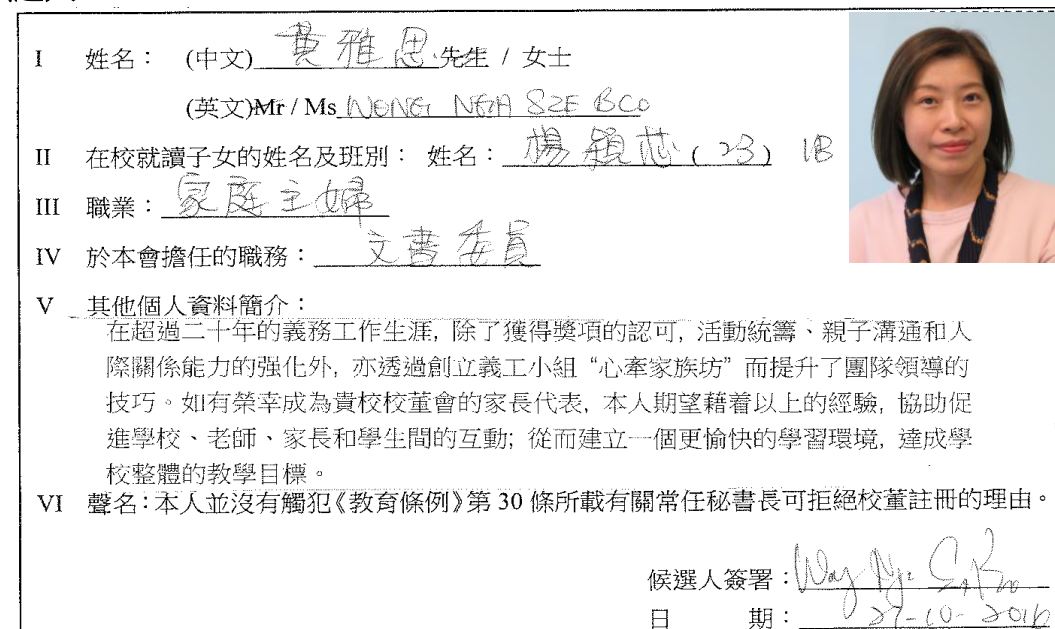 I 姓名： (中文) 黃雅思 先生 / 女士
(英文)Mr / Ms WONG NGA SZE BCO
II 在校就讀子女的姓名及班別： 姓名： 楊穎芯 (23) 1B
III 職業： 家庭主婦
IV 於本會擔任的職務： 文書委員
V 其他個人資料簡介：
在超過二十年的義務工作生涯, 除了獲得獎項的認可, 活動統籌、親子溝通和人
際關係能力的強化外, 亦透過創立義工小組 “心牽家族坊” 而提升了團隊領導的
技巧。如有榮幸成為貴校校董會的家長代表, 本人期望藉着以上的經驗, 協助促
進學校、老師、家長和學生間的互動; 從而建立一個更愉快的學習環境, 達成學
校整體的教學目標。
VI 聲名：本人並沒有觸犯《教育條例》第 30 條所載有關常任秘書長可拒絕校董註冊的理由。
候選人簽署：
日 期： 27-10-2016